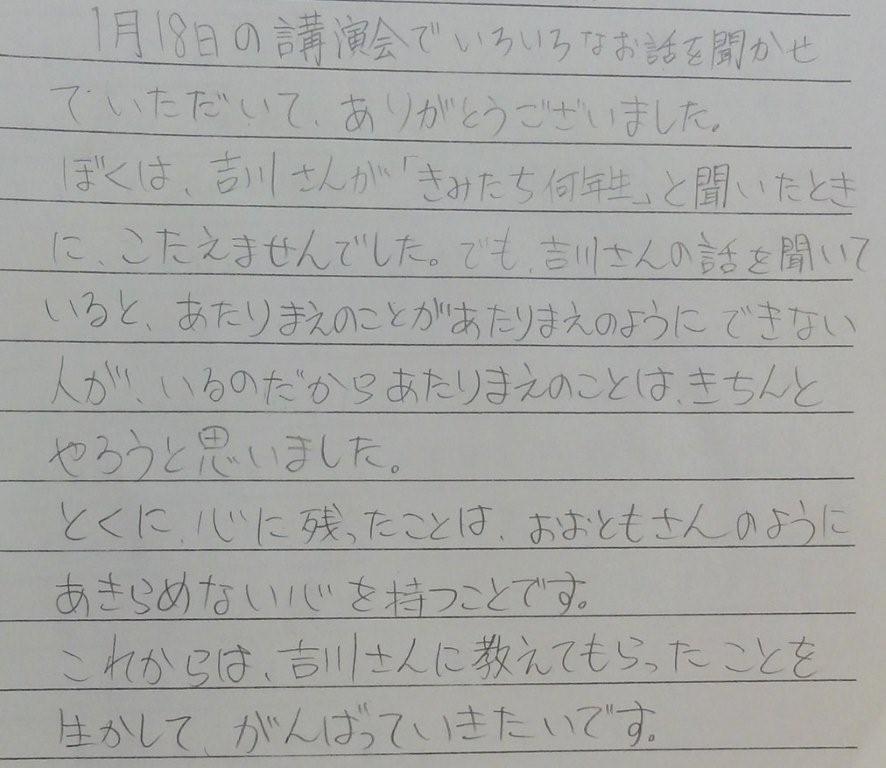 1月18日の講演会でいろいろなお話を聞かせ
ていただいて、ありがとうございました。
ぼくは、吉川さんが「きみたち何年生」と聞いたとき
に、こたえませんでした。でも、吉川さんの話を聞いて
いると、あたりまえのことがあたりまえのようにできない
人が、いるのだからあたりまえのことは、きちんと
やろうと思いました。
とくに、心に残ったことは、おおともさんのように
あきらめない心を持つことです。
これからは、吉川さんに教えてもらったことを
生かして、がんばっていきたいです。